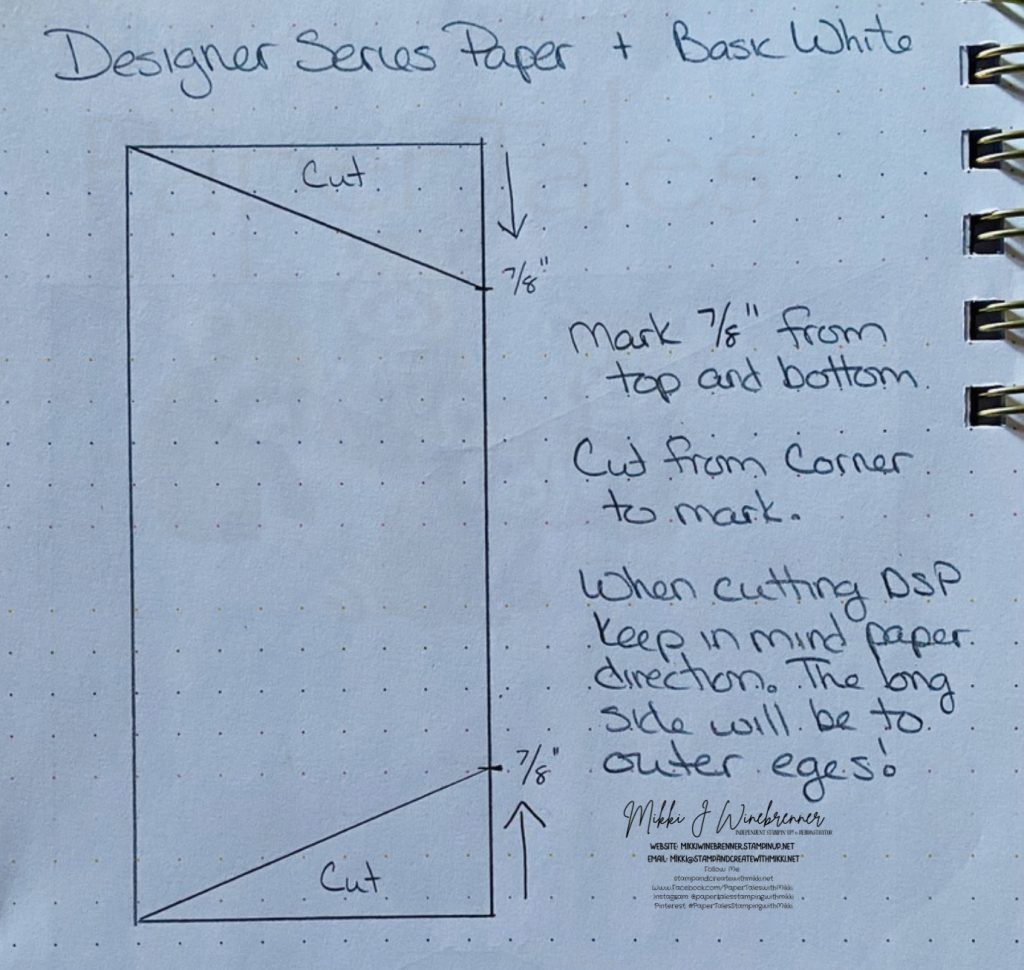 Designer Series Paper + Basic White
Cut
7/8"
Mark 7/8" from
top and bottom.
Cut from Corner
to mark.
When cutting DSP
keep in mind paper
direction. The long
side will be to
outer eges!
7/8"
Cut
Mikki J Winebrenner
INDEPENDENT STAMPIN' UP! ® DEMONSTRATOR
WEBSITE: MIKKIWINEBRENNER.STAMPINUP.NET
EMAIL: MIKKI@STAMPANDCREATEWITHMIKKI.NET
Follow Me:
stampandcreatewithmikki.net
www.facebook.com/PaperTaleswithMikki
Instagram @papertalesstampingwithmikki
Pinterest #PaperTalesStampingwithMikki
Paper Tales